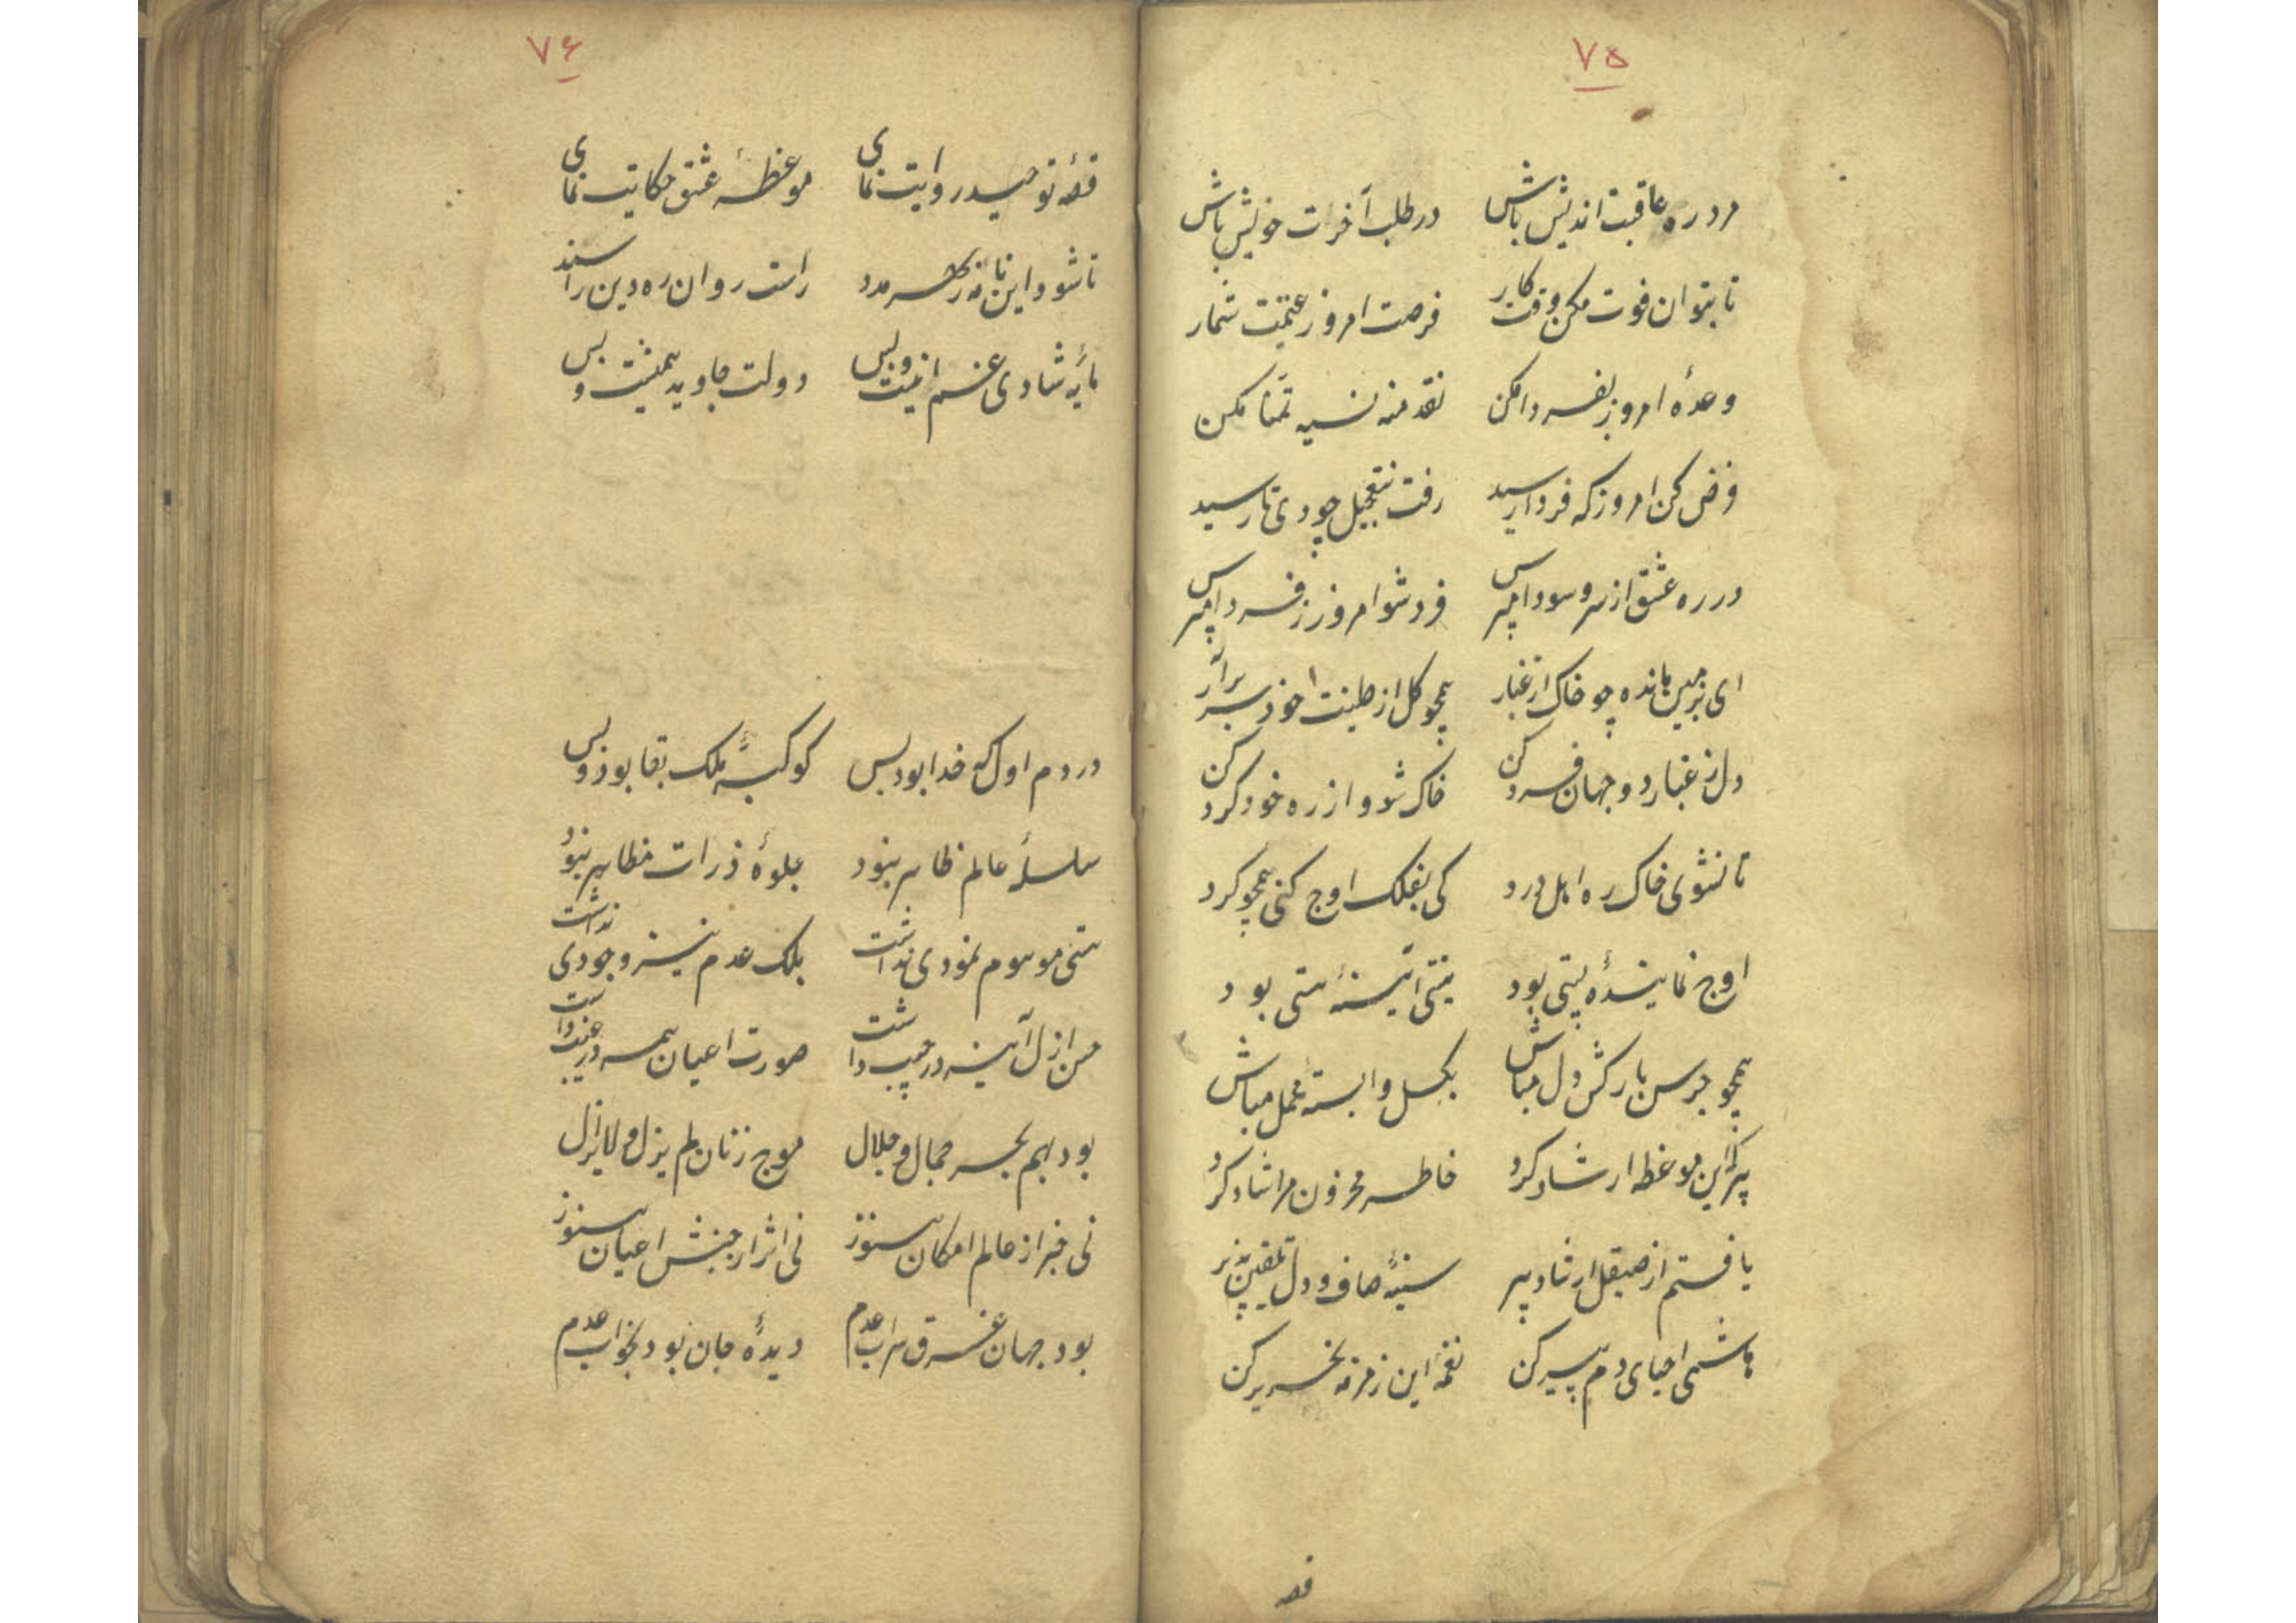 ۷۵
مرد ره عاقبت اندیش باش در طلب آخرات خویش باش
تا بتوان فوت مکن وقت کار فرصت امروز غنیمت شمار
وعدهٔ امروز بفردا مکن نقد منه نسیه تمنا مکن
فرض کن امروز که فردا رسید رفت بتعجیل چو دی تا رسید
در ره عشق از سر و سودا مپرس فرد شو امروز ز فردا مپرس
ای بزمین مانده چو خاک از غبار همچو گل از طینت خود سر برآر
دل ز غبار دو جهان فرد کن خاک شو و از ره خود گرد کن
تا نشوی خاک ره اهل درد کی بفلک اوج کنی همچو گرد
اوج نمایندهٔ پستی بود نیستی آئینهٔ هستی بود
همچو جرس بارکش دل مباش بگسل وابستهٔ محمل مباش
پیر که این موعظه ارشاد کرد خاطر محزون مرا شاد کرد
یافتم از صیقل ارشاد پیر سینهٔ صاف و دل تلقین پذیر
هاشمی احیای دم پیر کن نغمهٔ این زمزمه تحریر کن
قصه
۷۶
قصهٔ توحید روایت نمای موعظهٔ عشق حکایت نمای
تا شود این نامه ز اهل مدد راست روان ره دین را سند
مایهٔ شادی غم اینست و بس دولت جاوید همینست و بس
در دم اول که خدا بود بس کوکبهٔ ملک بقا بود و بس
سلسلهٔ عالم ظاهر نبود جلوهٔ ذرات مظاهر نبود
هستی موسوم نمودی نداشت بلک عدم نیز وجودی نداشت
حسن ازل آینه در جیب داشت صورت اعیان همه در غیب داشت
بود بهم بحر جمال و جلال موج زنان لم یزل و لایزال
نی خبر از عالم امکان هنوز نی اثر از جنبش اعیان هنوز
بود جهان غرق سراب عدم دیدهٔ جان بود بخواب عدم